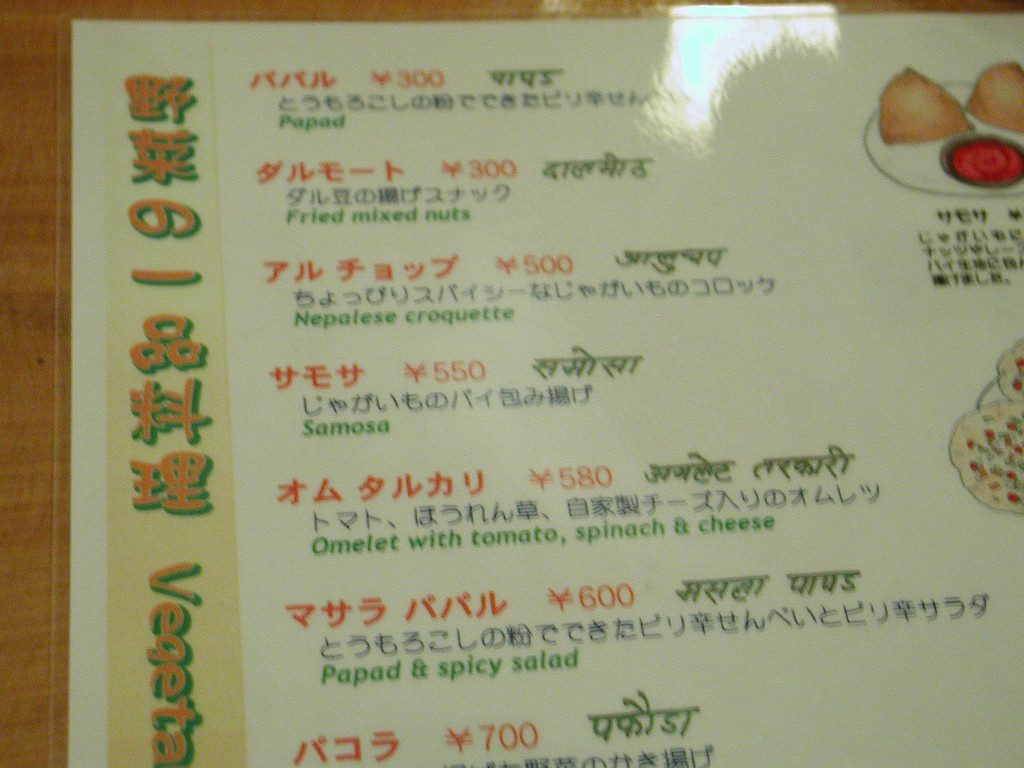 野菜の一品料理 Vegeta
パパル ¥300 पापड
とうもろこしの粉でできたピリ辛せん
Papad
ダルモート ¥300 दालमोठ
ダル豆の揚げスナック
Fried mixed nuts
アル チョップ ¥500 आलुचप
ちょっぴりスパイシーなじゃがいものコロッケ
Nepalese croquette
サモサ ¥550 समोसा
じゃがいものパイ包み揚げ
Samosa
オム タルカリ ¥580 अमलेट तरकारी
トマト、ほうれん草、自家製チーズ入りのオムレツ
Omelet with tomato, spinach & cheese
マサラ パパル ¥600 मसला पापड
とうもろこしの粉でできたピリ辛せんべいとピリ辛サラダ
Papad & spicy salad
パコラ ¥700 पकौडा
野菜のかき揚げ
サモサ ¥
じゃがいもに
ナッツやレーズ
パイ生地に包ん
揚げました。